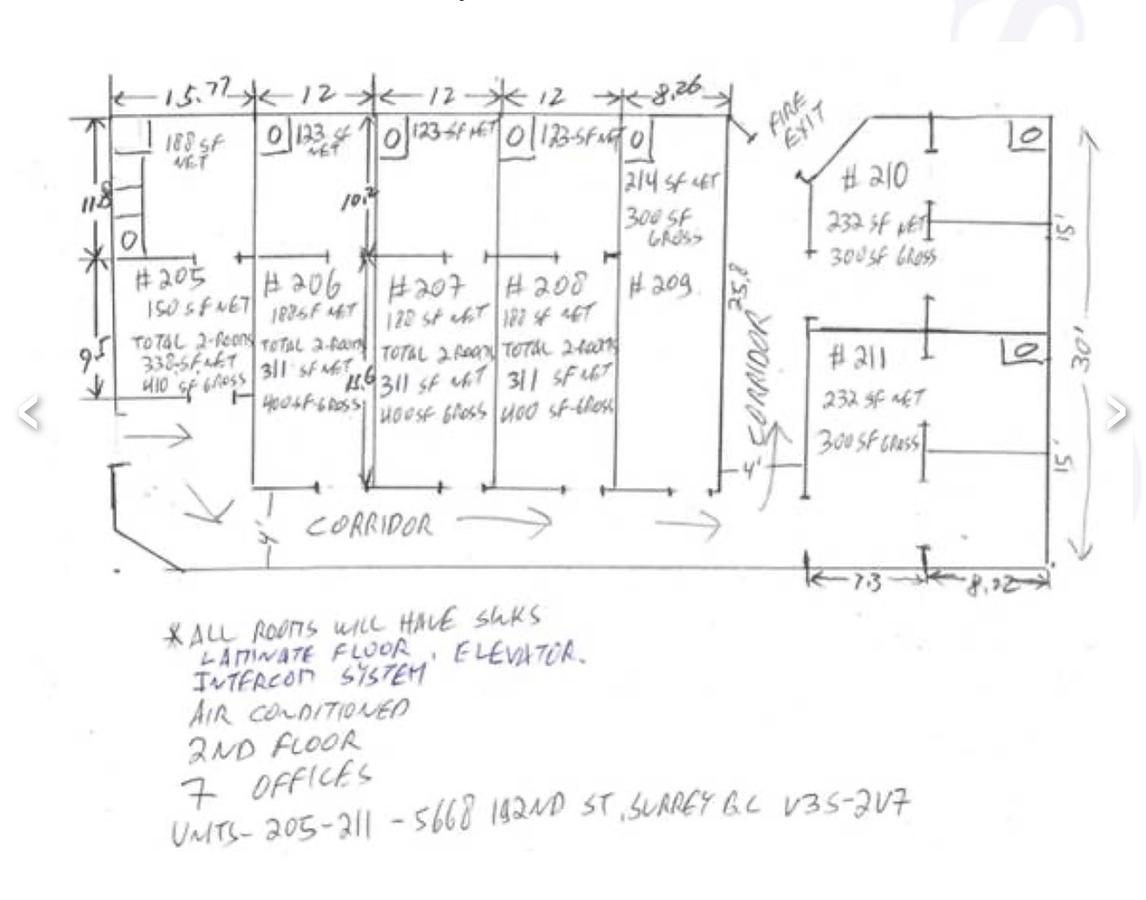 15.77
12
12
12
8.26
11.8
9.5
188 SF
NET
O
#205
150 SF NET
TOTAL 2-ROOMS
338-SF NET
410 SF GROSS
O
123 SF
NET
10.2
#206
188 SF NET
TOTAL 2-ROOMS
311 SF NET
15.6
400 SF-GROSS
O
123-SF NET
#207
188 SF NET
TOTAL 2 ROOMS
311 SF NET
400 SF GROSS
O
123-SF NET
#208
188 SF NET
TOTAL 2 ROOMS
311 SF NET
400 SF-GROSS
O
214 SF NET
300 SF
GROSS
#209
25.8
CORRIDOR
4'
FIRE
EXIT
O
#210
232 SF NET
300 SF GROSS
15'
O
#211
232 SF NET
300 SF GROSS
15'
30'
4'
CORRIDOR
7.3
* ALL ROOMS WILL HAVE SINKS
LAMINATE FLOOR, ELEVATOR.
INTERCOM SYSTEM
AIR CONDITIONED
2ND FLOOR
7 OFFICES
UNITS- 205-211 - 5668 192ND ST, SURREY B.C V3S-2V7